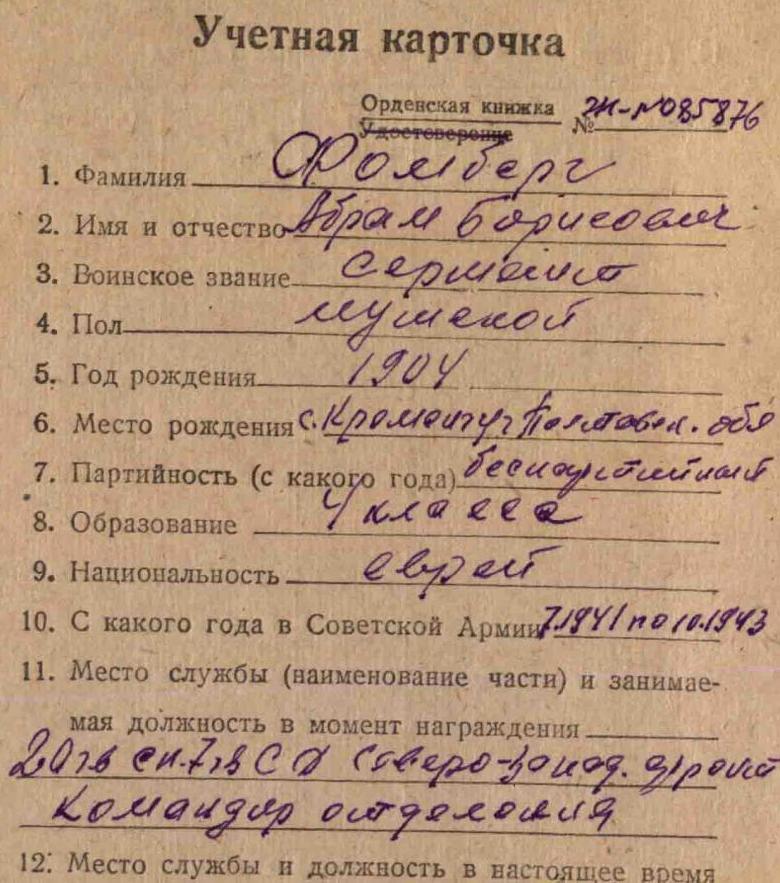 Учетная карточка
Орденская книжка
Удостоверение № Ж-№085876
1. Фамилия Фомберг
2. Имя и отчество Абрам Борисович
3. Воинское звание сержант
4. Пол мужской
5. Год рождения 1904
6. Место рождения с. Кременчуг Полтавск. обл
7. Партийность (с какого года) беспартийный
8. Образование 4 класса
9. Национальность еврей
10. С какого года в Советской Армии 7.1941 по 10.1943
11. Место службы (наименование части) и занимае-
мая должность в момент награждения
20 гв сп. 7 гв СД Северо-Запад. фронт
командир отделения
12. Место службы и должность в настоящее время